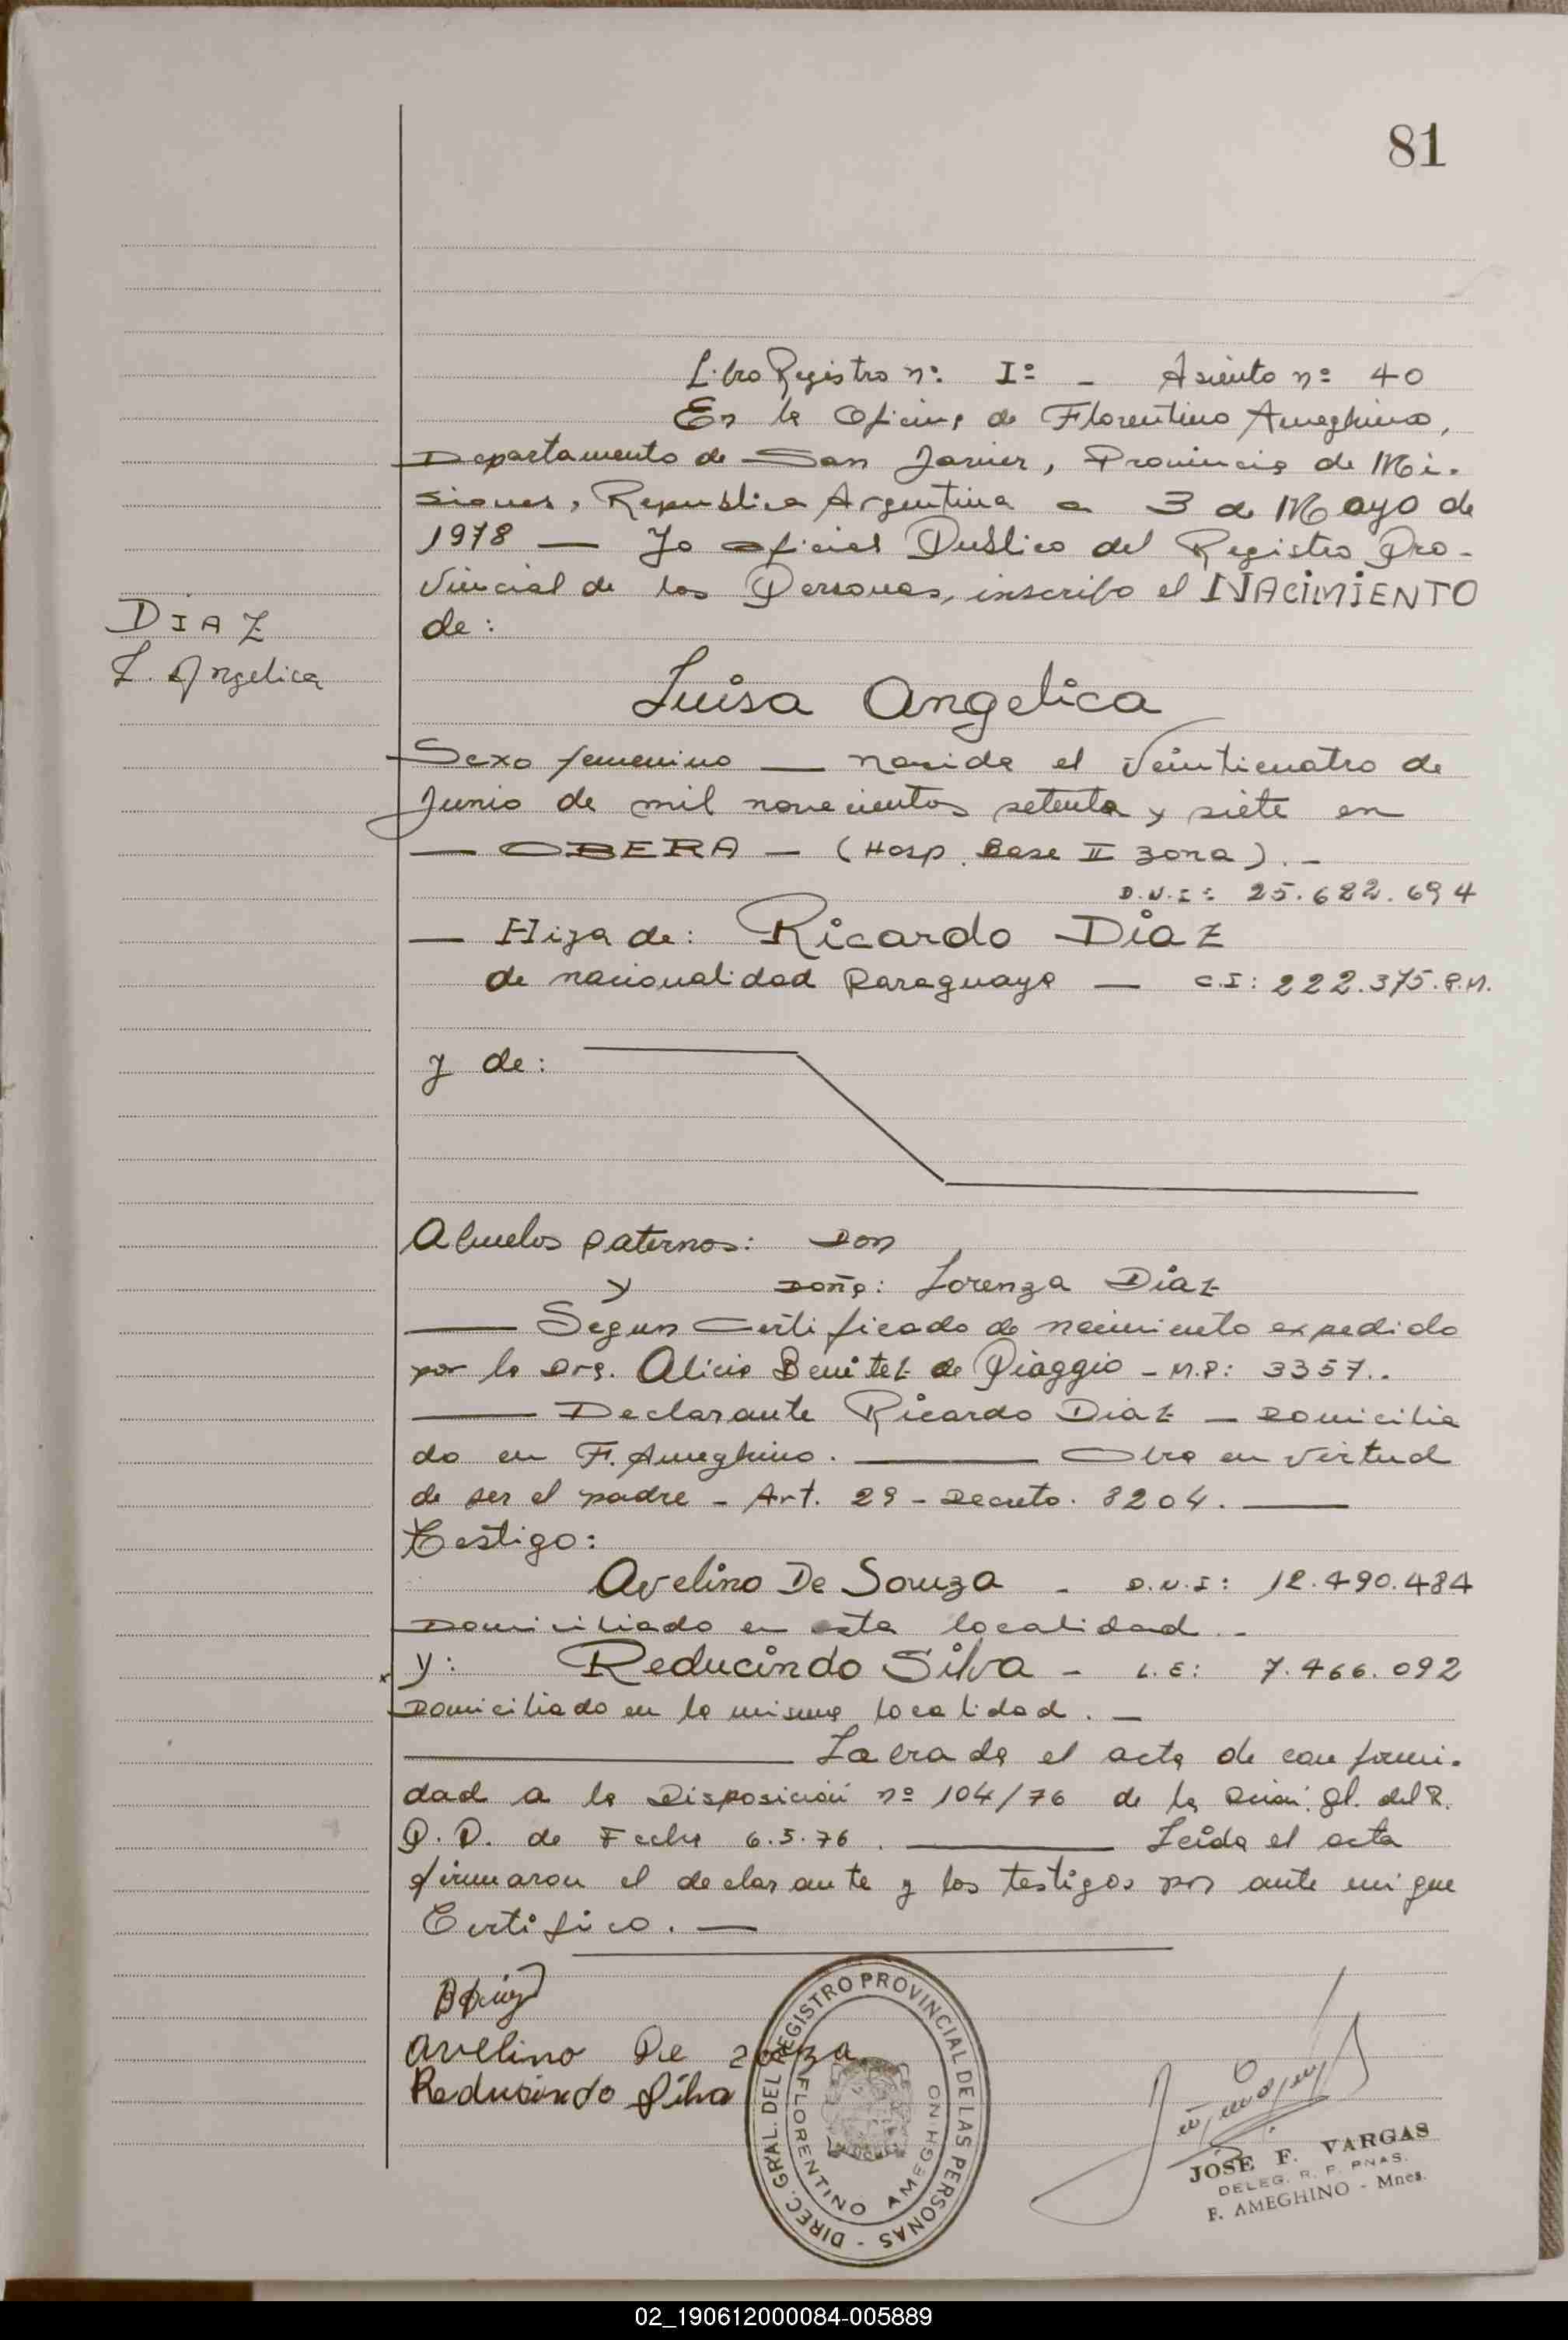 81
Libro Registro nº. Iº - Asiento nº 40
En la Oficina de Florentino Ameghino,
Departamento de San Javier, Provincia de Mi-
siones, Republica Argentina a 3 de Mayo de
1978 — Yo oficial Publico del Registro Pro-
vincial de las Personas, inscribo el NACIMIENTO
DIAZ
de:
L. Angelica
Luisa Angelica
Sexo femenino — nacida el Veinticuatro de
Junio de mil novecientos setenta y siete en
— OBERA — (Hosp. Base II zona). -
D.N.I: 25.682.694
— Hija de: Ricardo Diaz
de nacionalidad Paraguaya — C.I: 222.375.P.M.
y de:
Abuelos paternos: Don
y Doña: Lorenza Diaz
— Segun Certificado de nacimiento expedido
por la Dra. Alicia Benitez de Piaggio - M.P: 3357..
— Declarante Ricardo Diaz — Domicilia
do en F. Ameghino. — Obra en virtud
de ser el padre - Art. 29 - Decreto. 8204. —
Testigo:
Avelino De Souza - D.N.I: 12.490.484
Domiciliado en esta localidad. -
y: Reducindo Silva - L.E: 7.466.092
Domiciliado en la misma localidad. —
— Labrada el acta de conformi-
dad a la Disposición nº 104/76 de la Gl. del R.
P. P. de Fecha 6.5.76. — Leida el acta
firmaron el declarante y los testigos por ante mi que
Certifico. —
avelino De zouza
Reducindo Silva
DIREC. GRAL. DEL REGISTRO PROVINCIAL DE LAS PERSONAS -
FLORENTINO AMEGHINO
JOSE F. VARGAS
DELEG. R. P. PNAS.
F. AMEGHINO - Mnes.
02_190612000084-005889